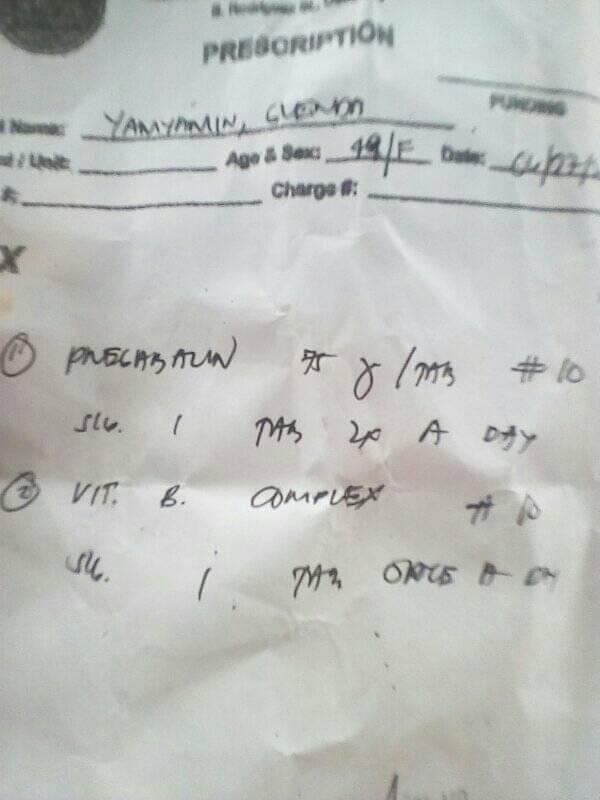 B. Rodriguez St.,
PRESCRIPTION
FUNDING
Name: YAMYAMIN, GLENDA
/ Unit: Age & Sex: 49/F Date: 06/27/
#: Charge #:
X
1 PREGABALIN 75 g/TAB #10
SIG. 1 TAB 2x A DAY
2 VIT. B. COMPLEX #10
SIG. 1 TAB ONCE A DAY